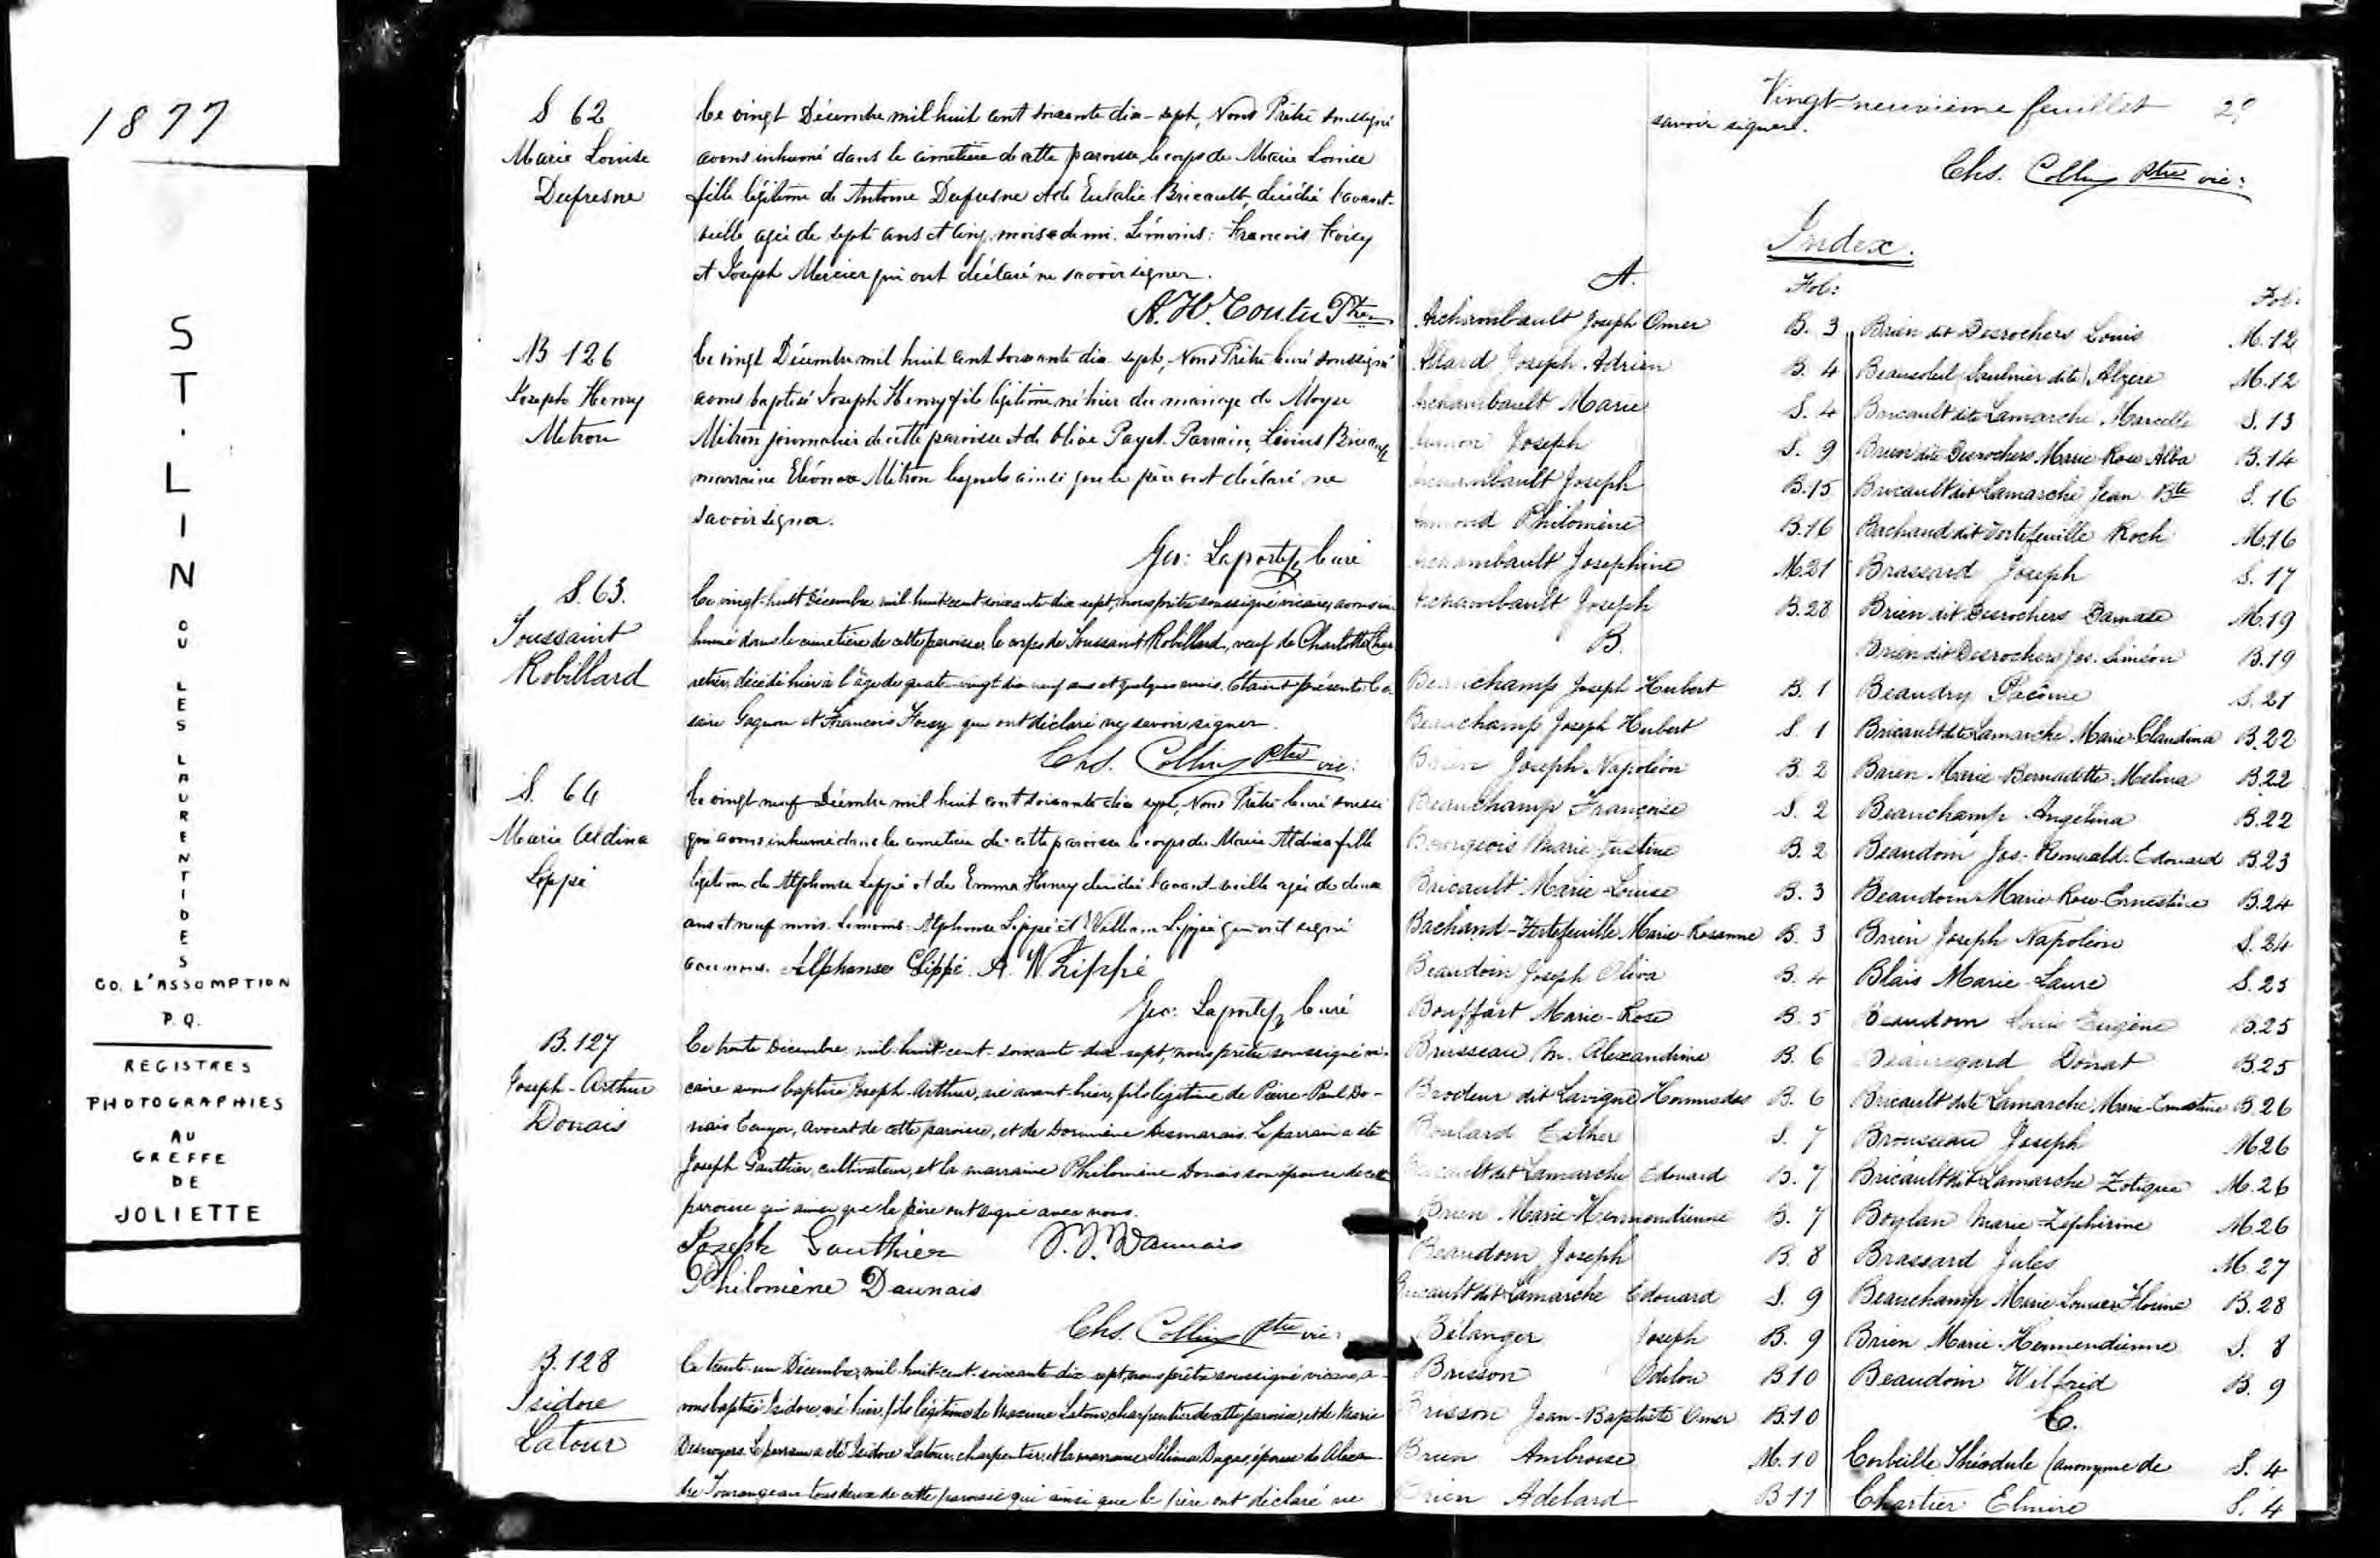 1877
ST. LIN
OU LES LAURENTIDES
CO. L'ASSOMPTION
P.Q.
REGISTRES
PHOTOGRAPHIES
AU
GREFFE
DE
JOLIETTE
S 62
Marie Louise
Dufresne
Le vingt Décembre mil huit cent soixante dix-sept, Nous Prêtre soussigné
avons inhumé dans le cimetière de cette paroisse le corps de Marie Louise
fille légitime de Antoine Dufresne et de Eulalie Bricault, décédée l'avant-
veille agée de sept ans et cinq mois et demi. Témoins: François Foisy
et Joseph Mercier qui ont déclaré ne savoir signer.
A. H. Coutu Ptre
B 126
Joseph Henry
Metron
Le vingt Décembre mil huit cent soixante dix sept, Nous Prêtre Curé soussigné
avons baptisé Joseph Henry fils légitime né hier du mariage de Moyse
Mitron journalier de cette paroisse et de Olive Payet. Parrain,
marraine Eléonore Mitron lesquels ainsi que le père ont déclaré ne
savoir signer.
Geo: Laporte Curé
S. 63.
Toussaint
Robillard
Ce vingt-huit Décembre mil-huit-cent soixante-dix-sept, nous prêtre soussigné vicaire, avons in-
humé dans le cimetière de cette paroisse, le corps de Toussaint Robillard, veuf de Charlotte Char
retier, décédé hier à l'âge de quatre-vingt-dix-neuf ans et quelques mois. Etaient présents Cé-
saire Gagnon et François Foisy qui ont déclaré ne savoir signer.
Chs. Collin Ptre vic:
S. 64
Marie Aldina
Lippé
Le vingt neuf Décembre mil huit cent soixante dix sept, Nous Prêtre Curé soussi
gné avons inhumé dans le cimetière de cette paroisse le corps de Marie Aldina fille
légitime de Alphonse Lippé et de Emma Henry décédée l'avant-veille agée de deux
ans et neuf mois. Témoins Alphonse Lippé et William Lippé qui ont signé
avec nous. Alphonse Lippé. A. W Lippé
Geo: Laporte Curé
B. 127
Joseph-Arthur
Donais
Ce trente Décembre, mil-huit-cent-soixante-dix-sept, nous prêtre soussigné vi-
caire avons baptisé Joseph-Arthur, né avant-hier, fils légitime de Pierre-Paul Do-
nais Ecuyer, avocat de cette paroisse, et de Dorimène Desmarais. Le parrain a été
Joseph Gauthier, cultivateur, et la marraine Philomène Donais son épouse de cette
paroisse qui ainsi que le père ont signé avec nous.
Joseph Gauthier P. P. Daunais
Philomène Daunais
Chs. Collin Ptre vic:
B. 128
Isidore
Latour
Ce trente-un Décembre, mil-huit-cent-soixante-dix-sept, nous prêtre soussigné vicaire, a-
vons baptisé Isidore, né hier, fils légitime de Maxime Latour, charpentier de cette paroisse, et de Marie
Desroyers. Le parrain a été Isidore Latour, charpentier, et la marraine Délima Dugas, épouse de Alexan-
dre Tourangeau tous deux de cette paroisse qui ainsi que le père ont déclaré ne
Vingt-neuvième feuillet 29
savoir signer.
Chs. Collin Ptre vic:
Index.
A.
Fol:
Archambault Joseph Omer B. 3
Allard Joseph Adrien B. 4
Archambault Marie S. 4
Joseph S. 9
Archambault Joseph B. 15
Philomène B. 16
Archambault Josephine M. 21
Archambault Joseph B. 28
B.
Beauchamp Joseph Hubert B. 1
Beauchamp Joseph Hubert S. 1
Brien Joseph-Napoléon B. 2
Beauchamp Françoise S. 2
Bourgeois Marie-Justine B. 2
Bricault Marie-Louise B. 3
Bachand-Vertefeuille Marie-Rosanne B. 3
Beaudoin Joseph Oliva B. 4
Bouffart Marie-Rose B. 5
Brusseau M. Alexandrine B. 6
Brodeur dit Lavigne Hormisdas B. 6
Boulard Esther S. 7
Bricault dit Lamarche Edouard B. 7
Brien Marie-Hermendienne B. 7
Beaudoin Joseph B. 8
Bricault dit Lamarche Edouard S. 9
Bélanger Joseph B. 9
Brisson Odilon B 10
Brisson Jean-Baptiste Omer B. 10
Brien Ambroise M. 10
Brien Adelard B 11
Fol:
Brien dit Desrochers Louis M. 12
Beausoleil (Saulnier dite) Alzere M. 12
Bricault dite Lamarche Marcelle S. 13
Brien dite Desrochers Marie Rose Alba B. 14
Bricault dit Lamarche Jean Bte S. 16
Bachand dit Vertefeuille Roch M. 16
Brassard Joseph S. 17
Brien dit Desrochers Damase M. 19
Brien dit Desrochers Jos. Siméon B. 19
Beaudry Pacôme S. 21
Bricault dite Lamarche Marie-Claudina B. 22
Brien Marie-Bernadette-Melina B. 22
Beauchamp Angélina B. 22
Beaudoin Jos-Romuald-Edouard B. 23
Beaudoin Marie-Rose-Ernestine B. 24
Brien Joseph Napoléon S. 24
Blais Marie-Laure S. 25
Beaudoin Louis Eugène B. 25
Beauregard Donat B. 25
Bricault dite Lamarche Marie-Ernestine B. 26
Brousseau Joseph M 26
Bricault dit Lamarche Zotique M. 26
Boylan Marie-Zéphirine M. 26
Brassard Jules M. 27
Beauchamp Marie-Louise-Florine B. 28
Brien Marie-Hermendienne S. 8
Beaudoin Wilfrid B. 9
C.
Corbeille Théodule (anonyme de S. 4
Chartier Elmire S. 4